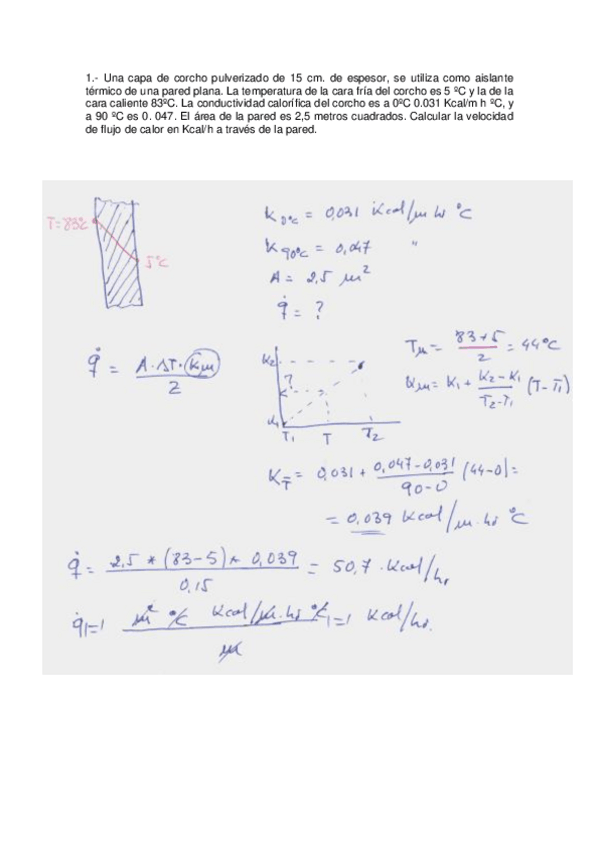 1.- Una capa de corcho pulverizado de 15 cm. de espesor, se utiliza como aislante
térmico de una pared plana. La temperatura de la cara fría del corcho es 5 ºC y la de la
cara caliente 83ºC. La conductividad calorífica del corcho es a 0ºC 0.031 Kcal/m h ºC, y
a 90 ºC es 0. 047. El área de la pared es 2,5 metros cuadrados. Calcular la velocidad
de flujo de calor en Kcal/h a través de la pared.
T=83ºC
5ºC
K0ºC = 0,031 Kcal/m hr ºC
K90ºC = 0,047 "
A = 2,5 m²
q̇ = ?
q̇ = A·ΔT·Km / 2
K2
?
K1
T1 T T2
Tm = 83+5 / 2 = 44ºC
Km = K1 + K2-K1 / T2-T1 (T-T1)
KT̄ = 0,031 + 0,047-0,031 / 90-0 (44-0) =
= 0,039 Kcal/m·hr ºC
q̇ = 2,5 * (83-5) * 0,039 / 0,15 = 50,7 · Kcal/hr
q̇ [=] m² ºC Kcal/m·hr ºC / m [=] Kcal/hr.